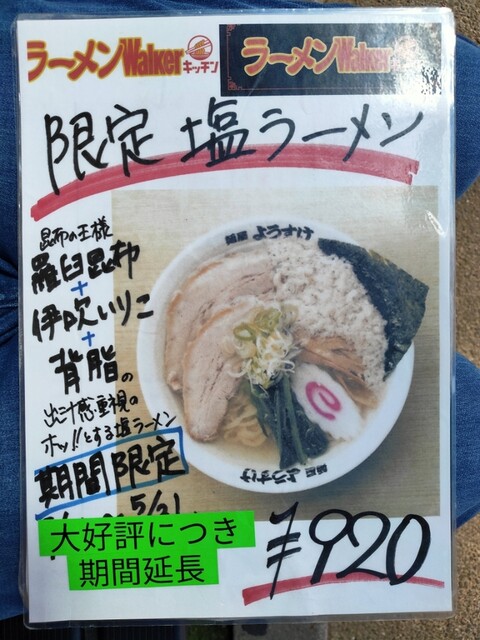 ラーメンWalkerキッチン
ラーメンWalker
限定 塩ラーメン
昆布の王様
羅臼昆布
+
伊吹いりこ
+
背脂の
出汁感重視の
ホッ!!とする塩ラーメン
期間限定
5/31
大好評につき
期間延長
¥920
麺屋 ようすけ
麺屋 ようすけ